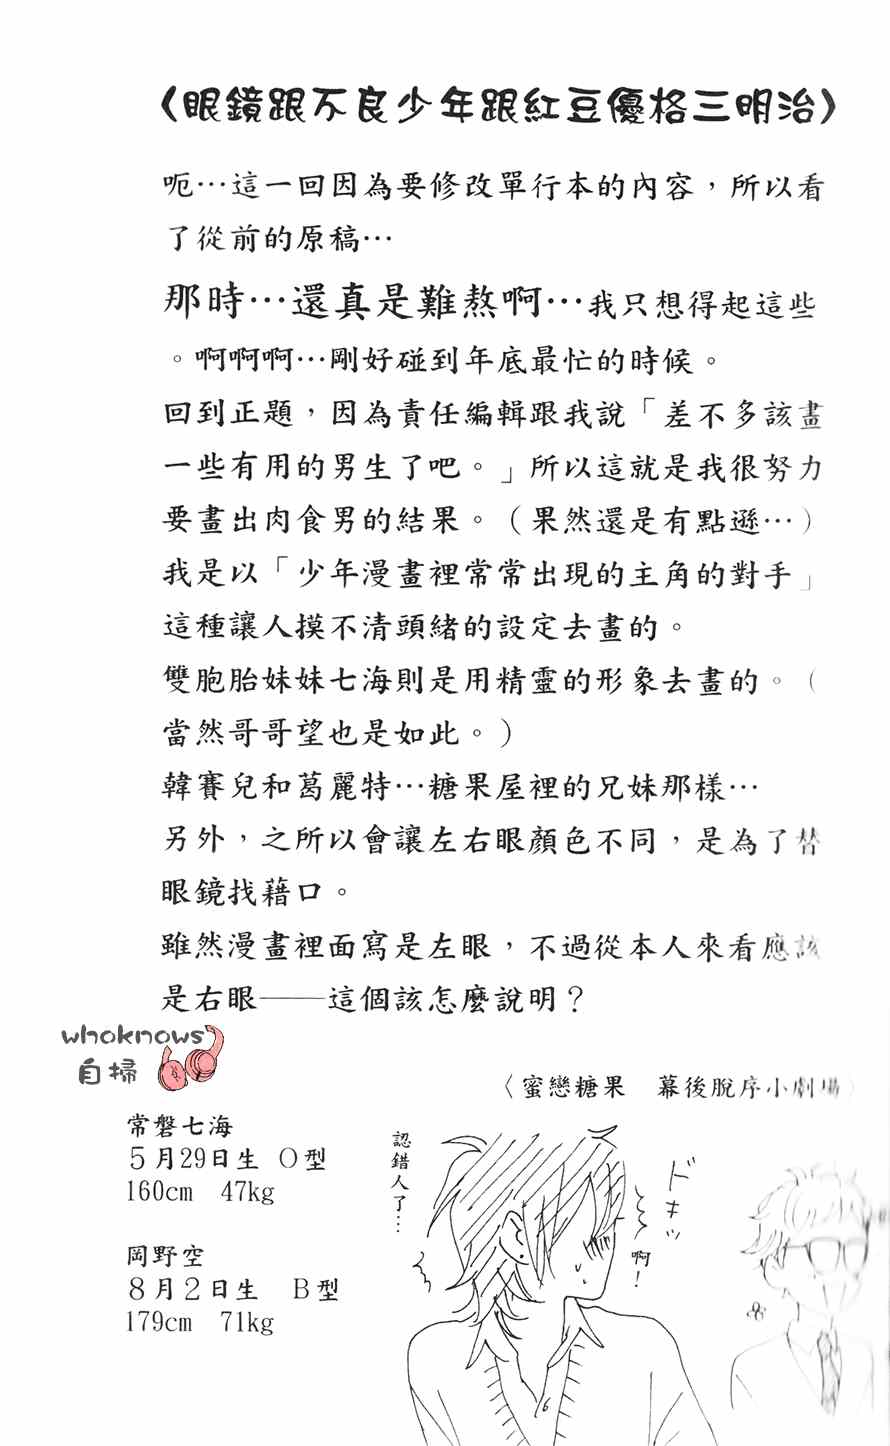 〈眼鏡跟不良少年跟紅豆優格三明治〉
呃…這一回因為要修改單行本的內容，所以看
了從前的原稿…
那時…還真是難熬啊…我只想得起這些
。啊啊啊…剛好碰到年底最忙的時候。
回到正題，因為責任編輯跟我說「差不多該畫
一些有用的男生了吧。」所以這就是我很努力
要畫出肉食男的結果。（果然還是有點遜…）
我是以「少年漫畫裡常常出現的主角的對手」
這種讓人摸不清頭緒的設定去畫的。
雙胞胎妹妹七海則是用精靈的形象去畫的。（
當然哥哥望也是如此。）
韓賽兒和葛麗特…糖果屋裡的兄妹那樣…
另外，之所以會讓左右眼顏色不同，是為了替
眼鏡找藉口。
雖然漫畫裡面寫是左眼，不過從本人來看應該
是右眼——這個該怎麼說明？
whoknows
自掃
常磐七海
５月29日生 Ｏ型
160cm 47kg
岡野空
８月２日生 Ｂ型
179cm 71kg
〈蜜戀糖果 幕後脫序小劇場〉
認錯人了…
ドキッ
啊！